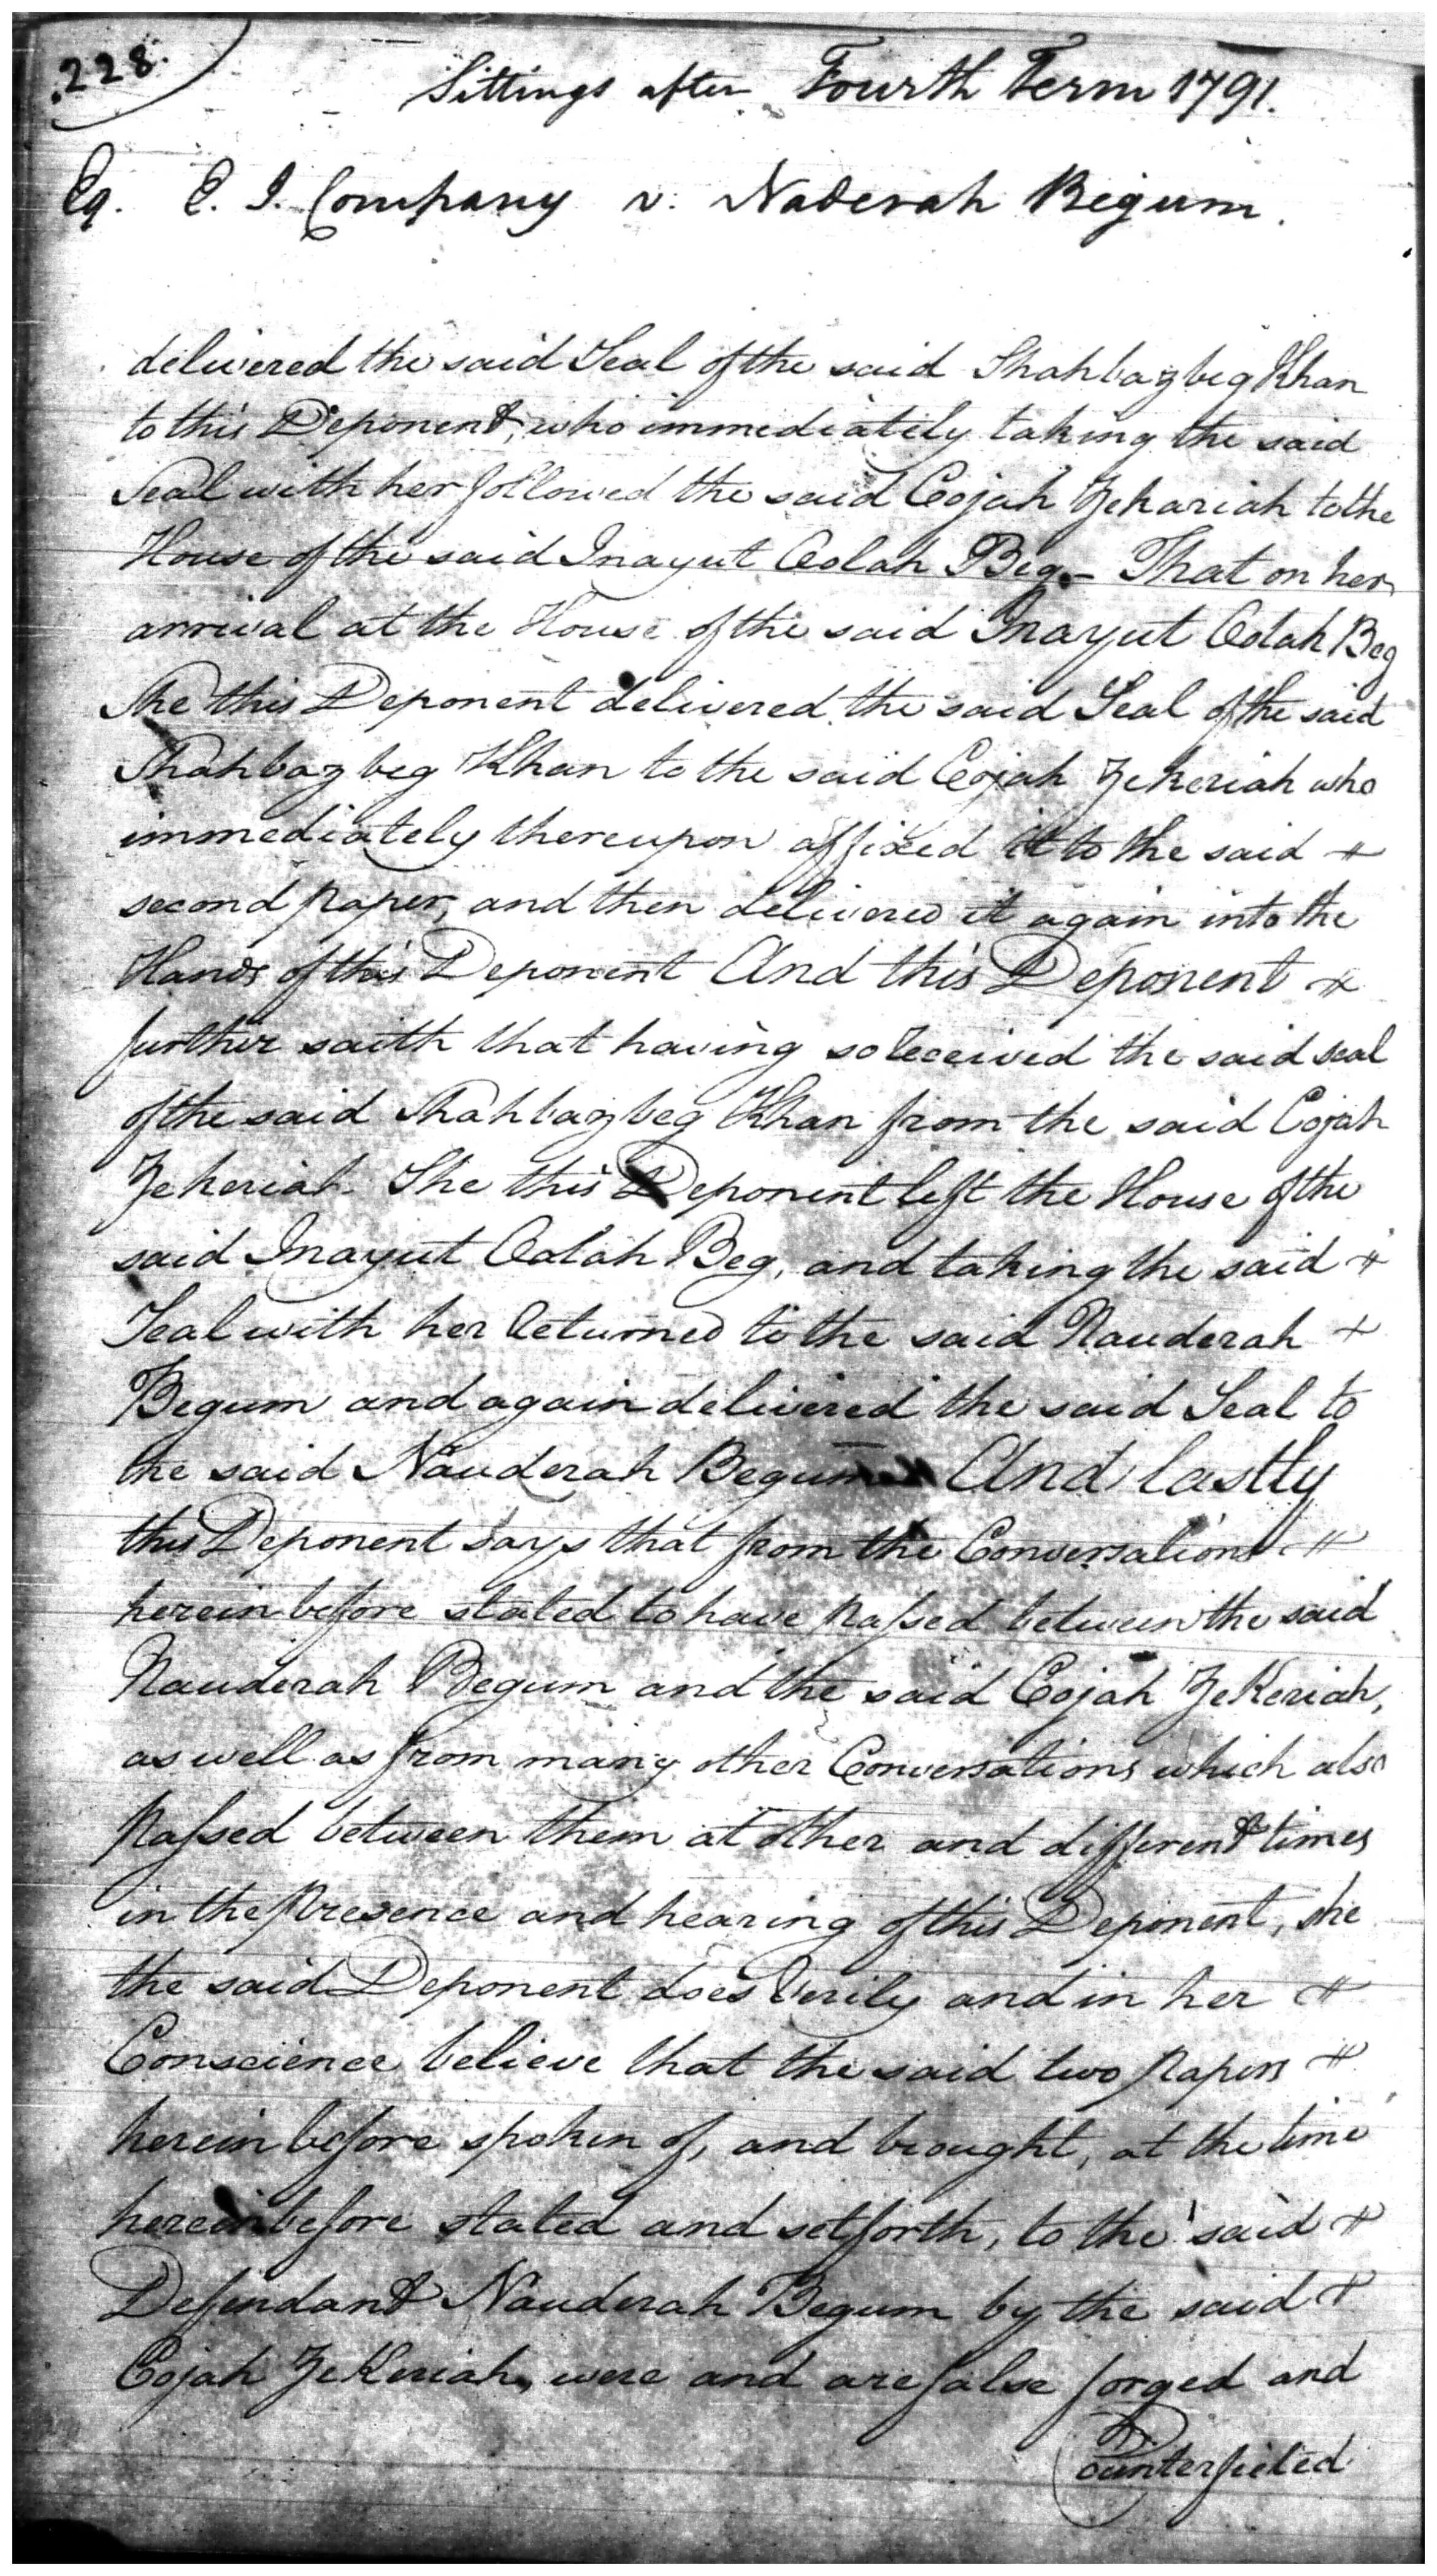 228.
Sittings after Fourth Term 1791.
Eq. E. I. Company v. Naderah Begum.
delivered the said Seal of the said Shahbazbeg Khan
to this Deponent, who immediately taking the said
Seal with her followed the said Cojah Zekariah to the
House of the said Inayut Oolah Beg. - That on her
arrival at the House of the said Inayut Oolah Beg
She this Deponent delivered the said Seal of the said
Shahbaz beg Khan to the said Cojah Zekeriah who
immediately thereupon affixed it to the said
second paper, and then delivered it again into the
Hands of this Deponent And this Deponent
further saith that having so received the said seal
of the said Shahbazbeg Khan from the said Cojah
Zekeriah. She this Deponent left the House of the
said Inayut Oolah Beg, and taking the said
Seal with her returned to the said Nauderah
Begum and again delivered the said Seal to
the said Nauderah Begum And lastly
this Deponent says that from the Conversations
herein before stated to have passed between the said
Nauderah Begum and the said Cojah Zekeriah,
as well as from many other Conversations which also
passed between them at other and different times
in the presence and hearing of this Deponent, she
the said Deponent does verily and in her
Conscience believe that the said two papers
herein before spoken of, and brought, at the time
herein before stated and setforth, to the said
Defendant Nauderah Begum by the said
Cojah Zekeriah, were and are false forged and
Counterfieted